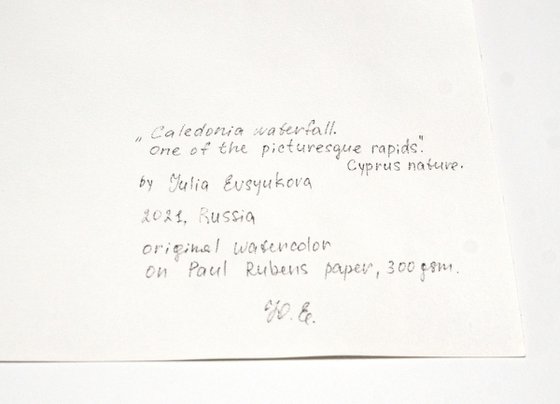 „Caledonia waterfall.
One of the picturesque rapids".
Cyprus nature.
by Julia Evsyukova
2021, Russia
original watercolor
on Paul Rubens paper, 300 gsm.
Ю. Е.